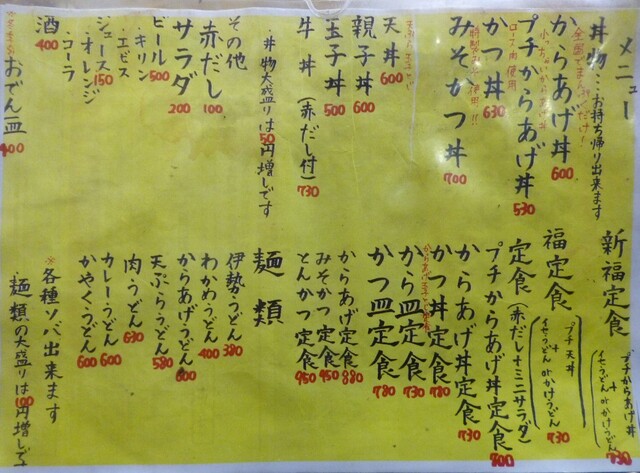 メニュー
丼物…お持ち帰り出来ます
からあげ丼 600
プチからあげ丼 530
かつ丼 630
ロース肉使用
みそかつ丼 700
天丼 600
親子丼 600
玉子丼 500
牛丼(赤だし付) 730
・丼物大盛りは50円増しです
その他
赤だし 100
サラダ 200
ビール 500
・キリン
・エビス
ジュース 150
・オレンジ
・コーラ
酒 400
おでん一皿 400
新福定食
プチからあげ丼
+
イセうどん or かけうどん
730
福定食
プチ天丼
+
イセうどん or かけうどん
730
定食(赤だし+ミニサラダ)
プチからあげ丼定食 700
からあげ丼定食 730
かつ丼定食 780
から皿定食 730
かつ皿定食 780
からあげ定食 880
みそかつ定食 950
とんかつ定食 950
麺類
伊勢うどん 380
わかめうどん 400
からあげうどん 600
天ぷらうどん 580
肉うどん 630
カレーうどん 600
かやくうどん 600
※各種ソバ出来ます
・麺類の大盛りは100円増しです